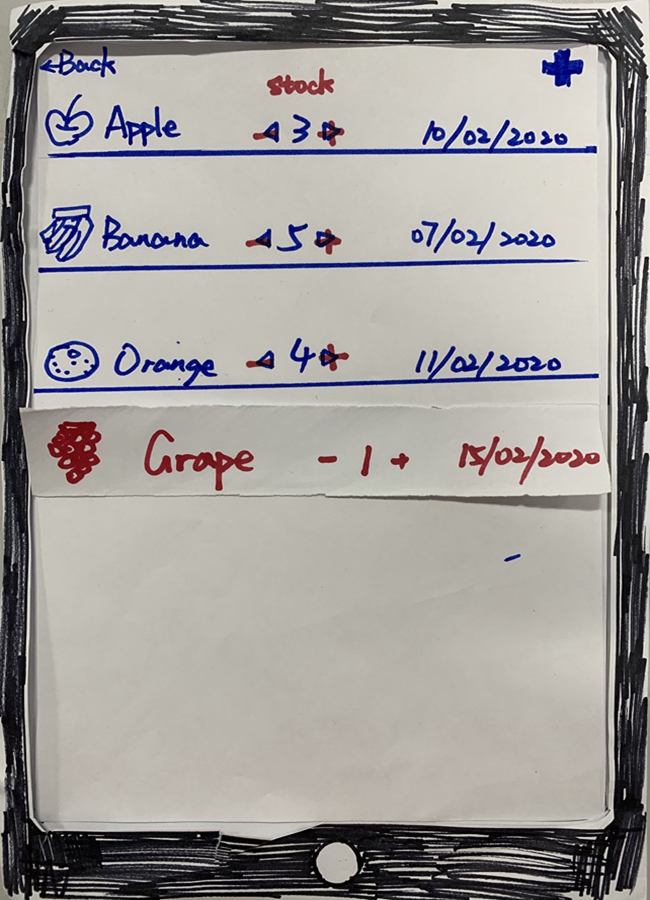 ←Back
stock
Apple - 3 + 10/02/2020
Banana - 5 + 07/02/2020
Orange - 4 + 11/02/2020
Grape - 1 + 15/02/2020